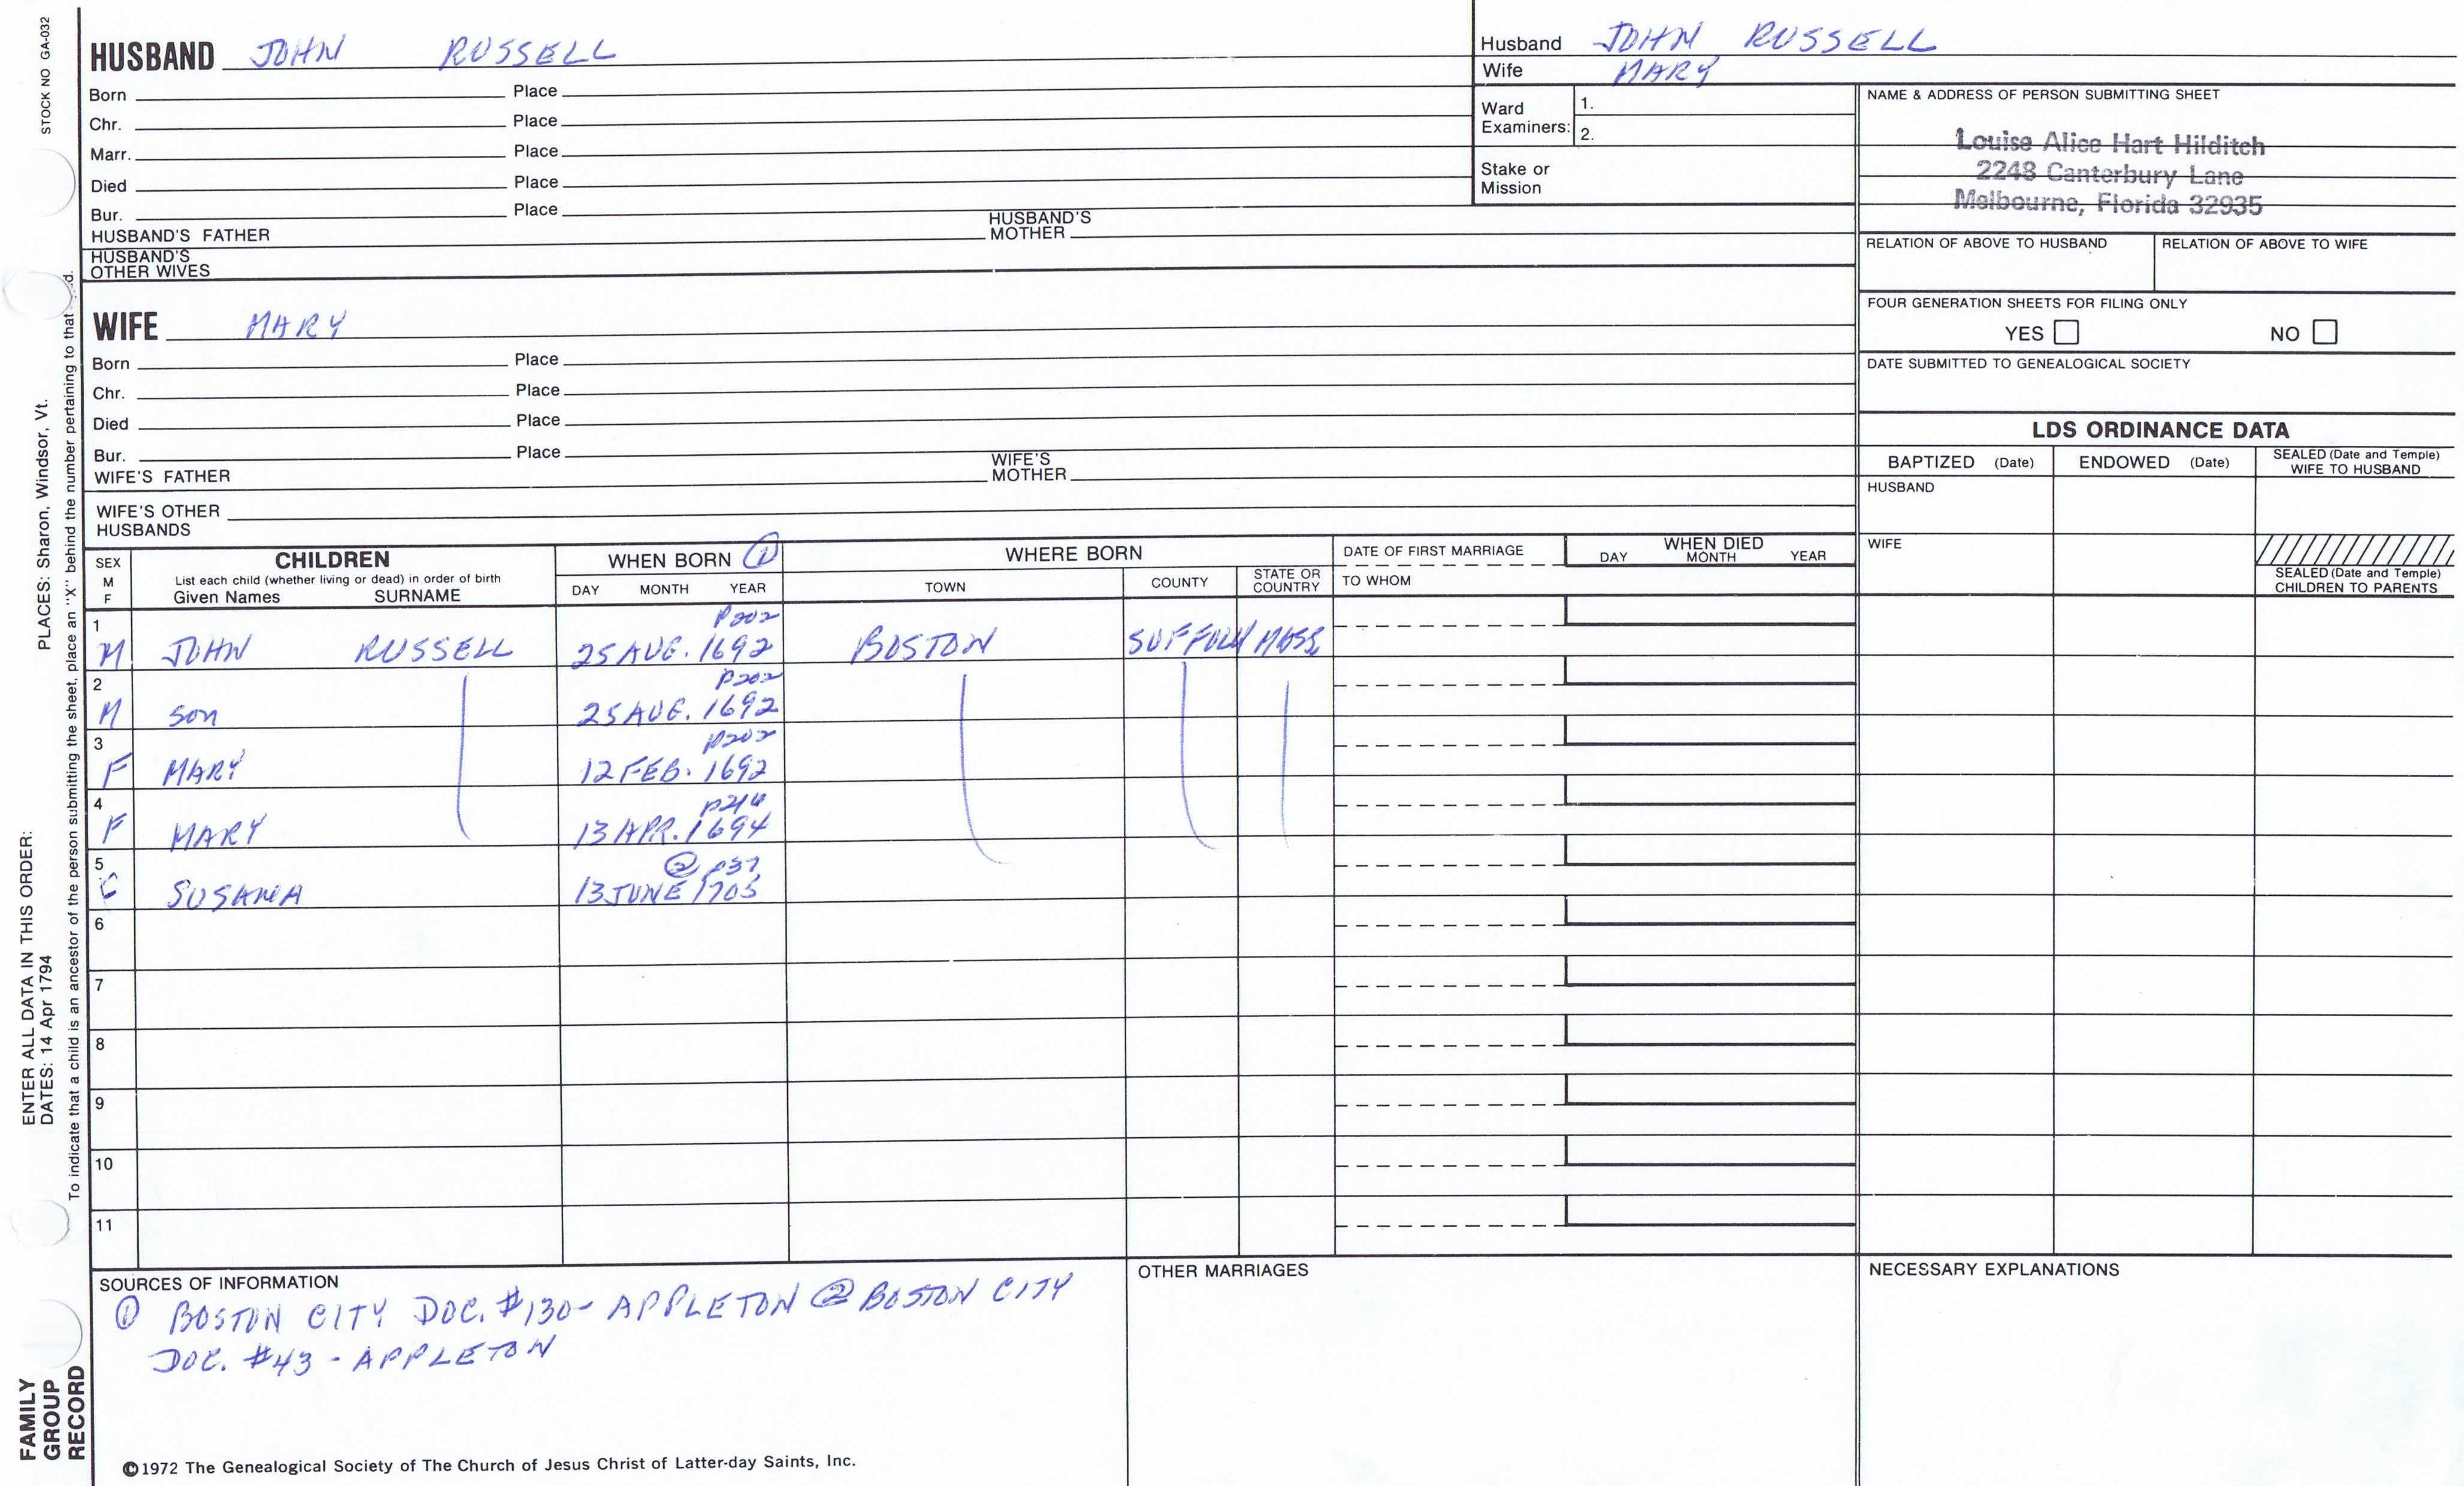 STOCK NO GA-032
HUSBAND JOHN RUSSELL
Born Place
Chr. Place
Marr. Place
Died Place
Bur. Place
HUSBAND'S FATHER HUSBAND'S MOTHER
HUSBAND'S OTHER WIVES
WIFE MARY
Born Place
Chr. Place
Died Place
Bur. Place
WIFE'S FATHER WIFE'S MOTHER
WIFE'S OTHER HUSBANDS
Husband JOHN RUSSELL
Wife MARY
Ward Examiners: 1.
2.
Stake or Mission
NAME & ADDRESS OF PERSON SUBMITTING SHEET
Louise Alice Hart Hilditch
2248 Canterbury Lane
Melbourne, Florida 32935
RELATION OF ABOVE TO HUSBAND RELATION OF ABOVE TO WIFE
FOUR GENERATION SHEETS FOR FILING ONLY
YES NO
DATE SUBMITTED TO GENEALOGICAL SOCIETY
LDS ORDINANCE DATA
BAPTIZED (Date) ENDOWED (Date) SEALED (Date and Temple) WIFE TO HUSBAND
HUSBAND
WIFE
SEALED (Date and Temple) CHILDREN TO PARENTS
SEX M F
CHILDREN
List each child (whether living or dead) in order of birth
Given Names SURNAME
WHEN BORN ①
DAY MONTH YEAR
WHERE BORN
TOWN COUNTY STATE OR COUNTRY
DATE OF FIRST MARRIAGE
TO WHOM
WHEN DIED
DAY MONTH YEAR
1 P202
M JOHN RUSSELL 25 AUG. 1692 BOSTON SUFFOLK MASS
2 P202
M son 25 AUG. 1692
3 P202
F MARY 12 FEB. 1692
4 P214
F MARY 13 APR. 1694
5 ② P37
SUSANA 13 JUNE 1705
6
7
8
9
10
11
SOURCES OF INFORMATION
① BOSTON CITY DOC. #130- APPLETON ② BOSTON CITY
DOC. #43 - APPLETON
OTHER MARRIAGES
NECESSARY EXPLANATIONS
©1972 The Genealogical Society of The Church of Jesus Christ of Latter-day Saints, Inc.
FAMILY GROUP RECORD
ENTER ALL DATA IN THIS ORDER:
DATES: 14 Apr 1794 PLACES: Sharon, Windsor, Vt.
To indicate that a child is an ancestor of the person submitting the sheet, place an "X" behind the number pertaining to that